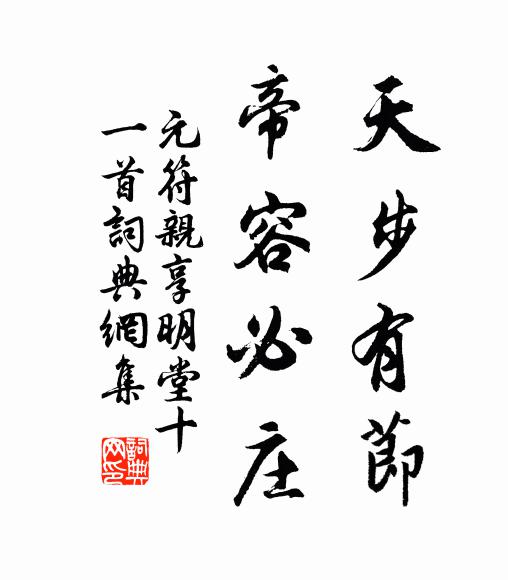 天步有節
帝容必庄
元符親享明堂十
一首詞典網集
詞典
网印